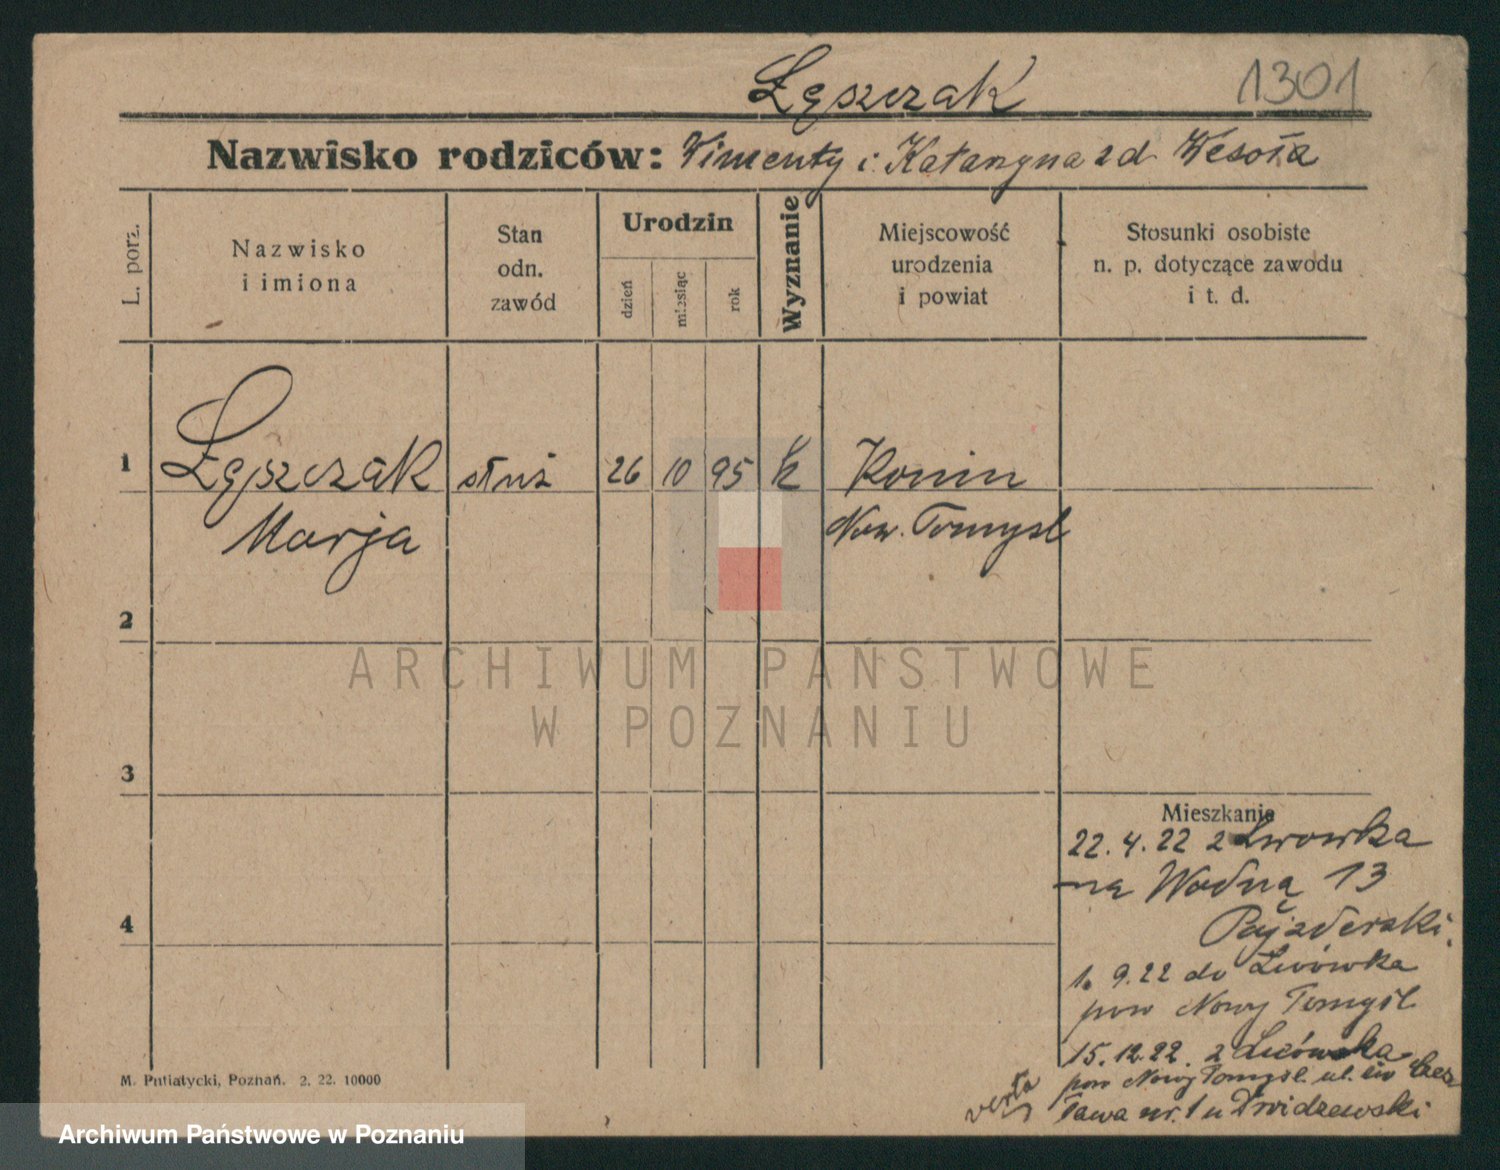 Łęszczak
1301
Nazwisko rodziców: Wincenty i Katarzyna zd Wesoła
L. porz.
Nazwisko
i imiona
Stan
odn.
zawód
Urodzin
dzień
miesiąc
rok
Wyznanie
Miejscowość
urodzenia
i powiat
Stosunki osobiste
n. p. dotyczące zawodu
i t. d.
1 Łęszczak służ 26 10 95 k Konin
Marja Now. Tomyśl
2
3
4
Mieszkanie
22.4.22 z Lwowka
na Wodną 13
Pajzderski.
1. 9.22 do Lwówka
pow Nowy Tomyśl.
15.12.22. z Lwówka
pow Nowy Tomyśl. ul. św
nr. 1 u
verta
M. Putiatycki, Poznań. 2. 22. 10000
ARCHIWUM PAŃSTWOWE
W POZNANIU
Archiwum Państwowe w Poznaniu